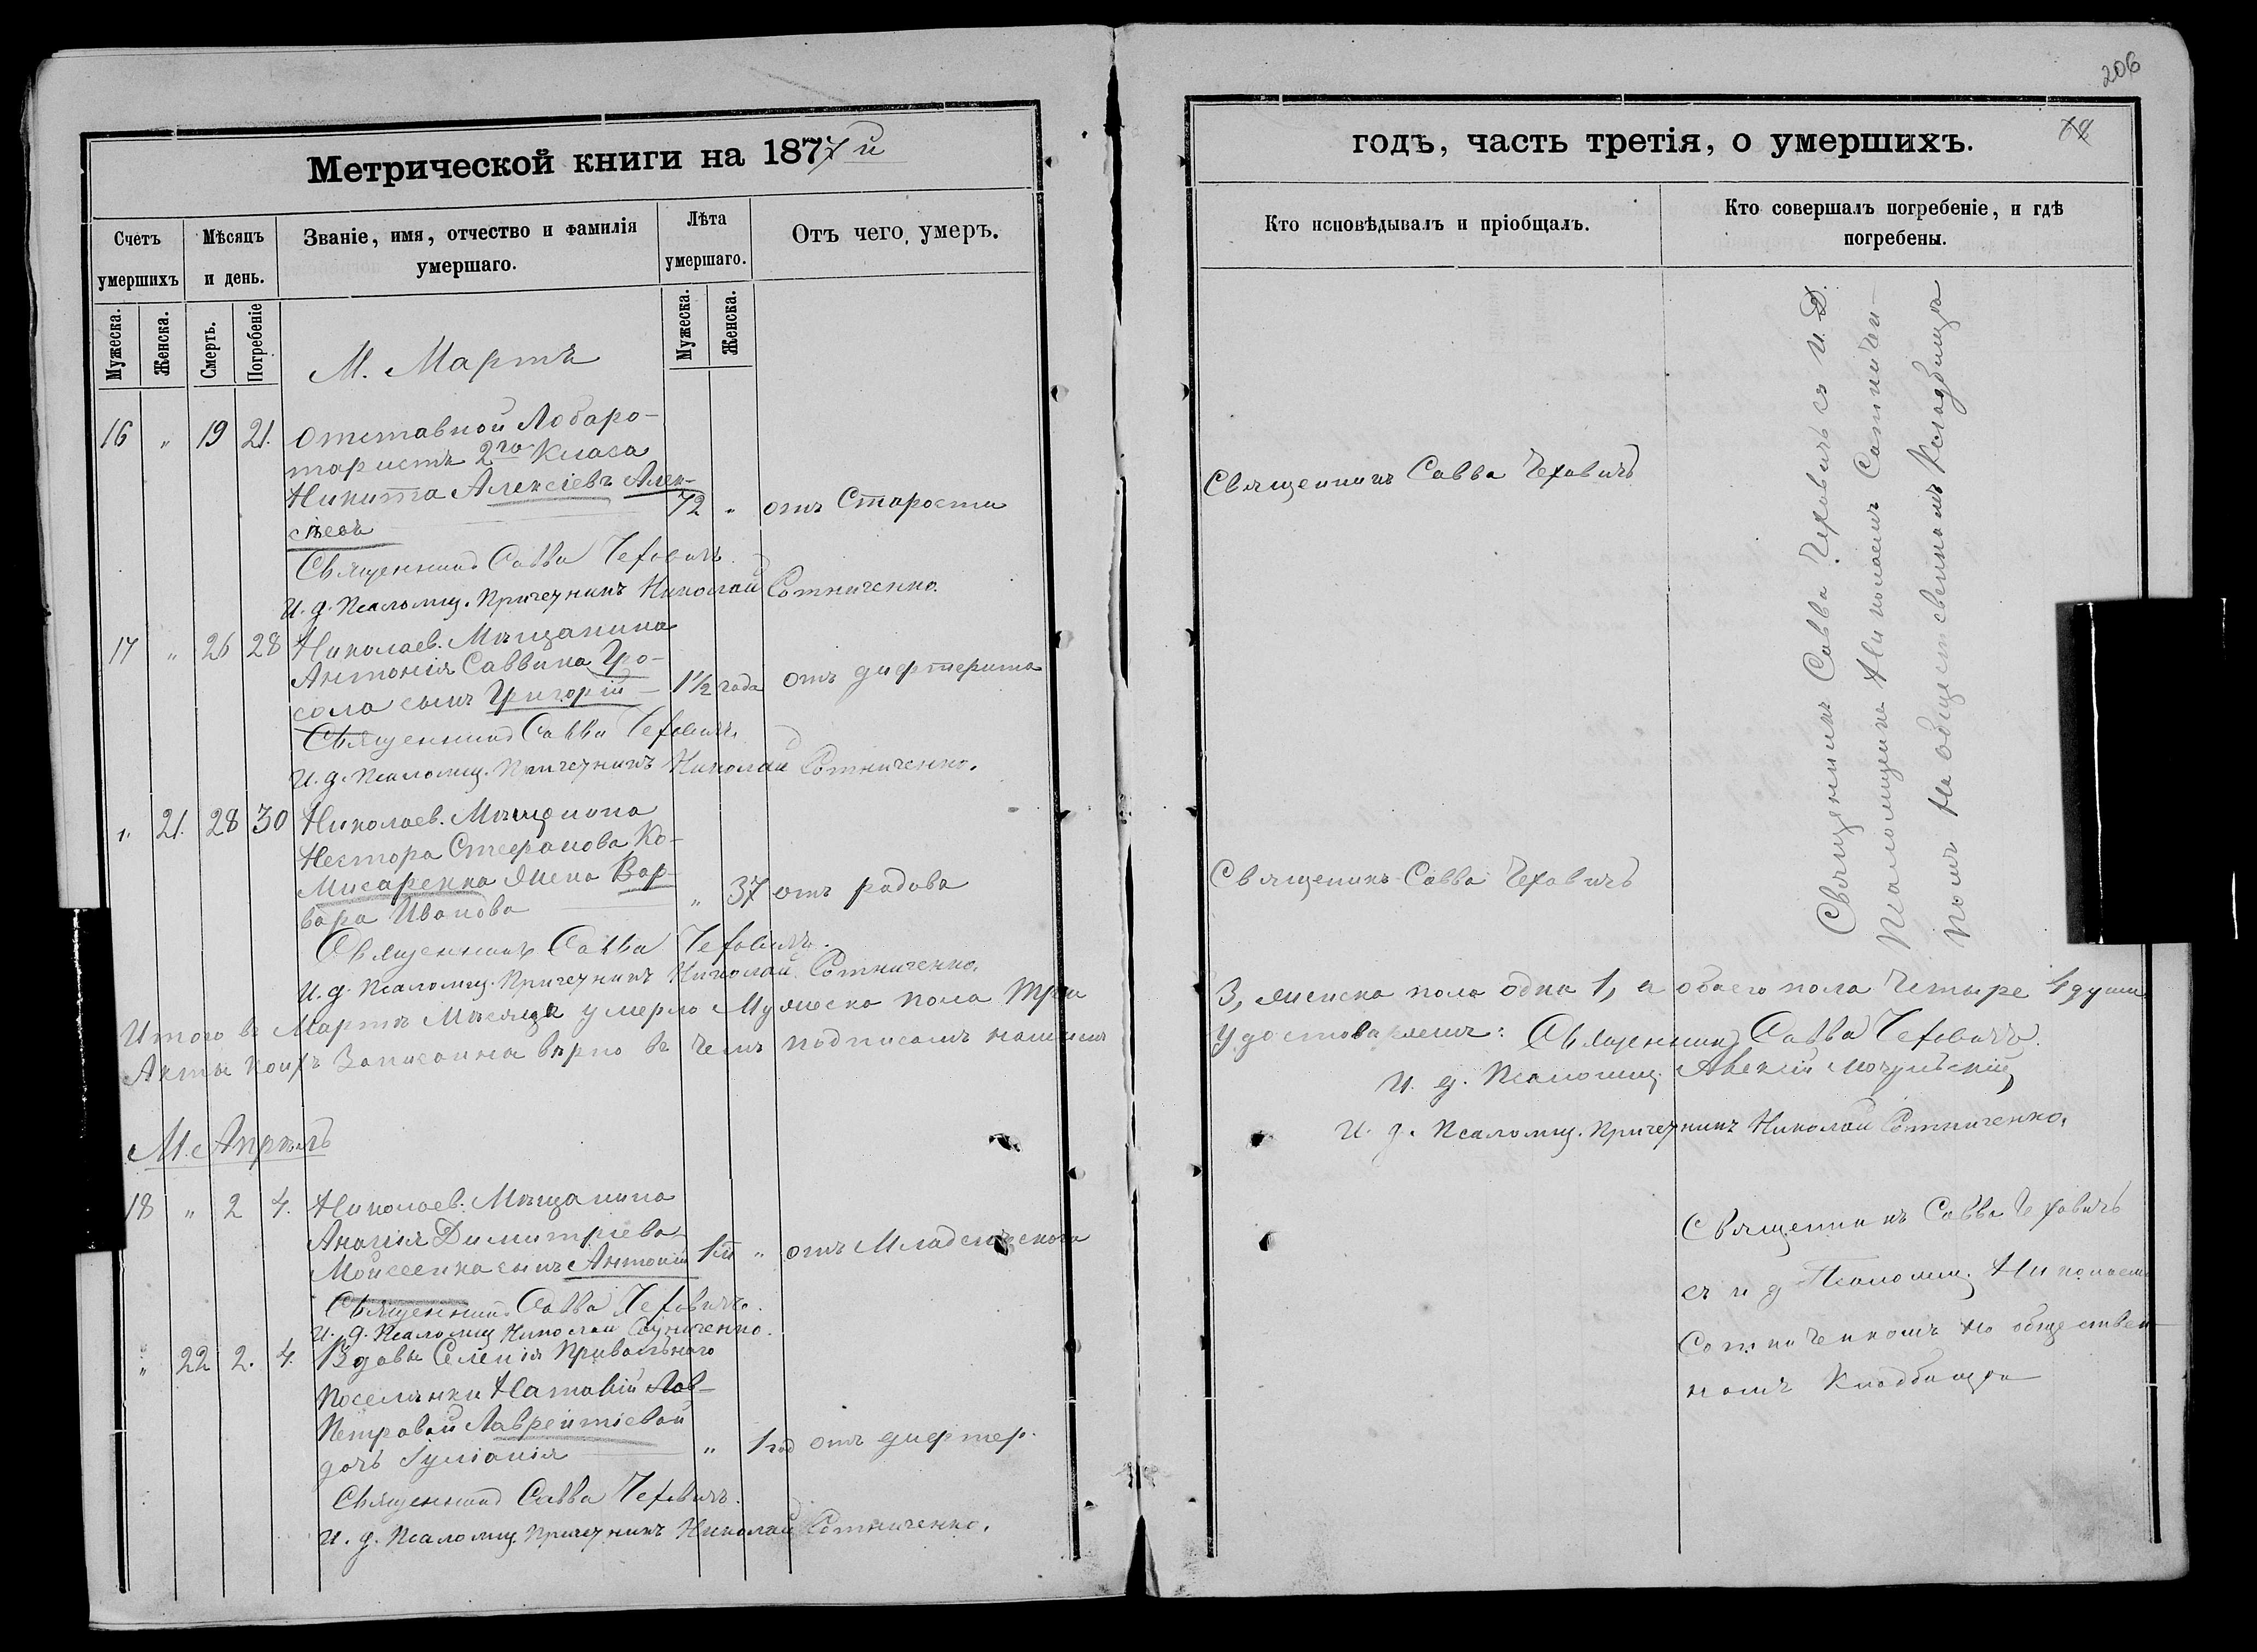 206
Метрической книги на 1877й
годъ, часть третія, о умершихъ.
Счетъ умершихъ
Мѣсяцъ и день.
Званіе, имя, отчество и фамилія умершаго.
Лѣта умершаго.
Отъ чего умеръ.
Кто исповѣдывалъ и пріобщалъ.
Кто совершалъ погребеніе, и гдѣ погребены.
Мужеска.
Женска.
Смерть.
Погребеніе
Мужеска.
Женска.
М. Мартъ
16 " 19 21. Отставной Лобаро-
тористъ 2го Класа
Никита Алексіевъ Алек-
сѣевъ
72 " отъ Старости
Священникъ Савва Чеховичъ
Священникъ Савва Чеховичъ.
И. д. Псаломщ. Причетникъ Николай Сотниченко.
17 " 26 28 Николаев. Мѣщанина
Антонія Саввина Гро-
сола сынъ Григорій 1½ года отъ дифтерита
Священникъ Савва Чеховичъ.
И. д. Псаломщ. Причетникъ Николай Сотниченко.
" 21. 28 30 Николаев. Мѣщанина
Нестора Стефанова Ко-
мисаренка жена Вар-
вара Иванова
" 37 отъ родовъ
Священикъ Савва Чеховичъ
Священникъ Савва Чеховичъ.
И. д. Псаломщ. Причетникъ Николай Сотниченко.
Священникъ Савва Чеховичъ съ И. Д.
Псаломщика Николаемъ Сотничен-
комъ на общественномъ Кладбищѣ
Итого въ Мартѣ Мѣсяцѣ умерло Мужеска пола три
3, женска пола одна 1, а обоего пола Четыре 4 души
Акты коихъ Записанна вѣрно въ чемъ подписомъ нашимъ
удостовѣряемъ: Священникъ Савва Чеховичъ.
И. д. Псаломщ. Алексій Мочульскій
И. д. Псаломщ. Причетникъ Николай Сотниченко.
М. Апрѣль
18 " 2 4. Николаев. Мѣщанина
Ананія Димитріева
Мойсеенка сынъ Антоній " отъ Младенческого
Священникъ Савва Чеховичъ.
И. д. Псаломщ Николай Сотниченко.
" 22 2. 4. Вдовы Селенія Привольного
Поселянки Наталіи Лав-
Петровой Лаврентіевой
дочь Іуліанія " 1 год отъ дифтер.
Священникъ Савва Чеховичъ.
И. д. Псаломщ. Причетникъ Николай Сотниченко.
Священникъ Савва Чеховичъ
съ и д Псаломщ. Николаем
Сотниченкомъ на обществен-
номъ Кладбищѣ